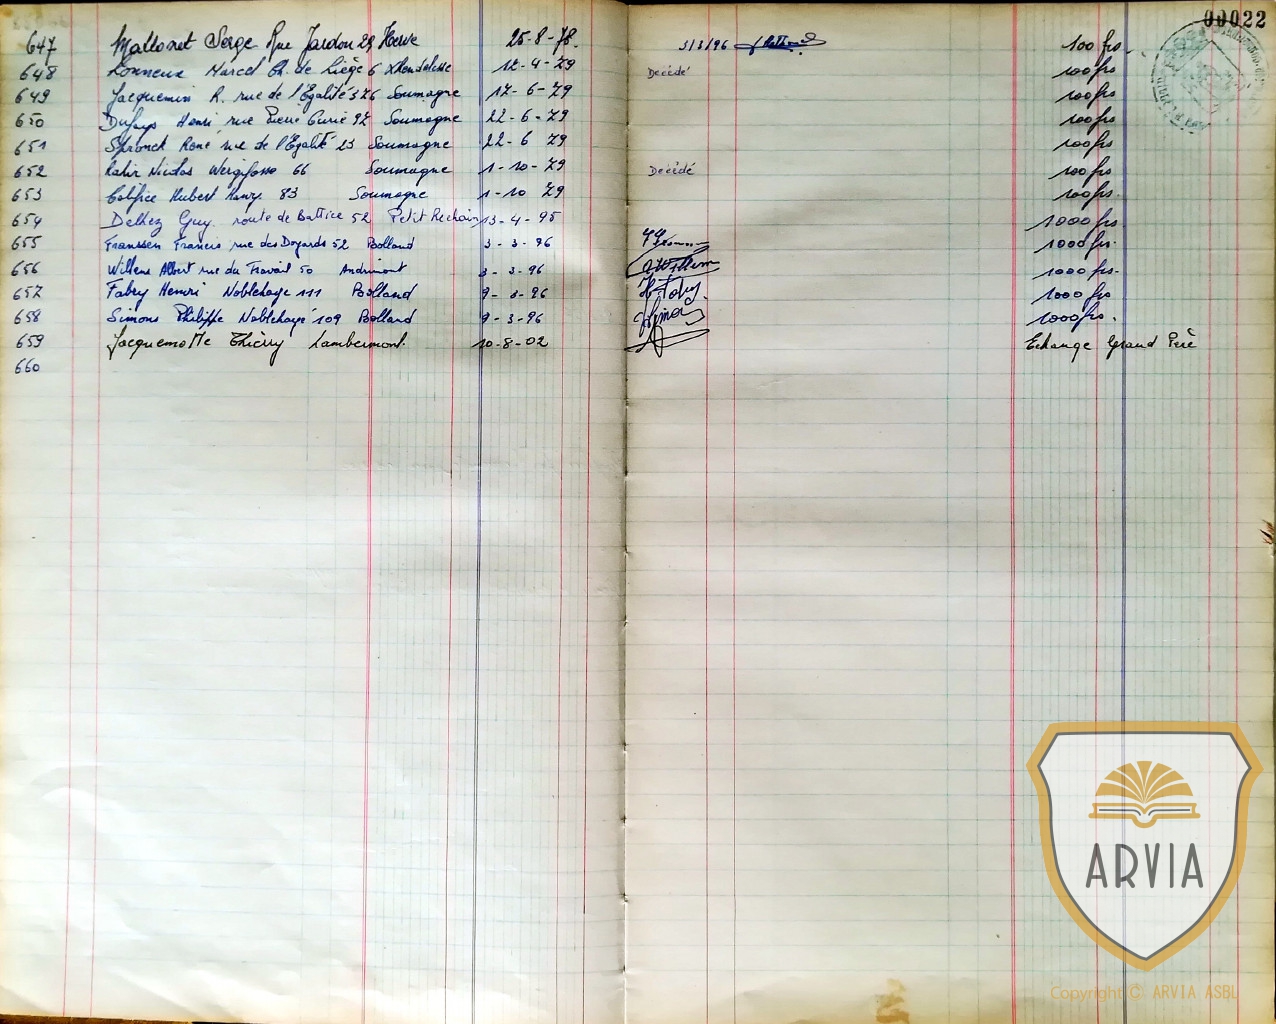 00022
647 Mallonet Serge Rue Jardon 29 Herve 25-8-78. 3/3/96 100 frs
648 Lonneux Marcel Ch. de Liège 6 Xhendelesse 12-4-79 Décédé 100 frs
649 Jacquemin R. rue de l'Egalité 376 Soumagne 17-6-79 100 frs
650 Dufays Henri, rue Pierre Curie 97 Soumagne 22-6-79 100 frs
651 Spronck René rue de l'Egalité 23 Soumagne 22-6 79 100 frs
652 Rahir Nicolas Wergifosse 66 Soumagne 1-10-79 Décédé 100 frs
653 Hubert 83 Soumagne 1-10 79 100 frs.
654 Delhez Guy. route de Battice 52 Petit Rechain 13-4-95 1000 frs.
655 Franssen Francis rue des Doyards 52 Bolland 3-3-96 1000 frs.
656 Willems Albert rue du Travail 50 Andrimont 3-3-96 A Willem 1000 frs.
657 Fabry Henri Noblehaye 111 Bolland 9-3-96 H. Fabry. 1000 frs
658 Simons Philippe Noblehaye 109 Bolland 9-3-96 1000 frs.
659 Jacquemotte Thierry Lambermont. 10-8-02 Echange Grand Père
660
ARVIA
Copyright © ARVIA ASBL